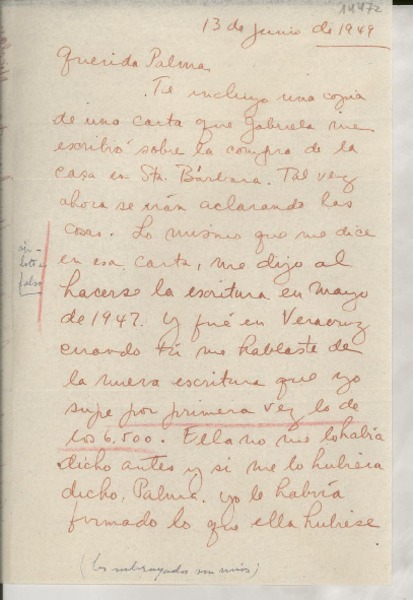 14472
13 de Junio de 1949
Querida Palma
Te incluyo una copia
de una carta que Gabriela me
escribió sobre la compra de la
casa en Sta. Bárbara. Tal vez
ahora se irán aclarando las
cosas. Lo mismo que me dice
en esa carta, me dijo al
hacerse la escritura en mayo
de 1947. Y fué en Veracruz
cuando tú me hablaste de
la nueva escritura que yo
supe por primera vez lo de
los 6,500. Ella no me lo había
dicho antes y si me lo hubiera
dicho, Palma, yo le habría
firmado lo que ella hubiese
falso
(los subrayados son míos)